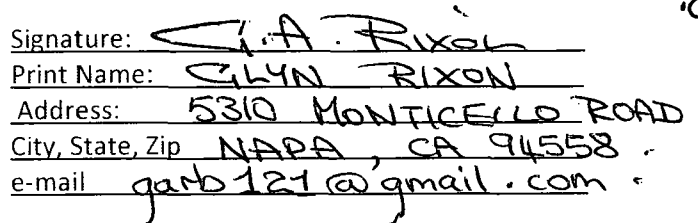 Signature: G.A. Rixon
Print Name: GLYN RIXON
Address: 5310 MONTICELLO ROAD
City, State, Zip NAPA, CA 94558.
e-mail garb121@gmail.com